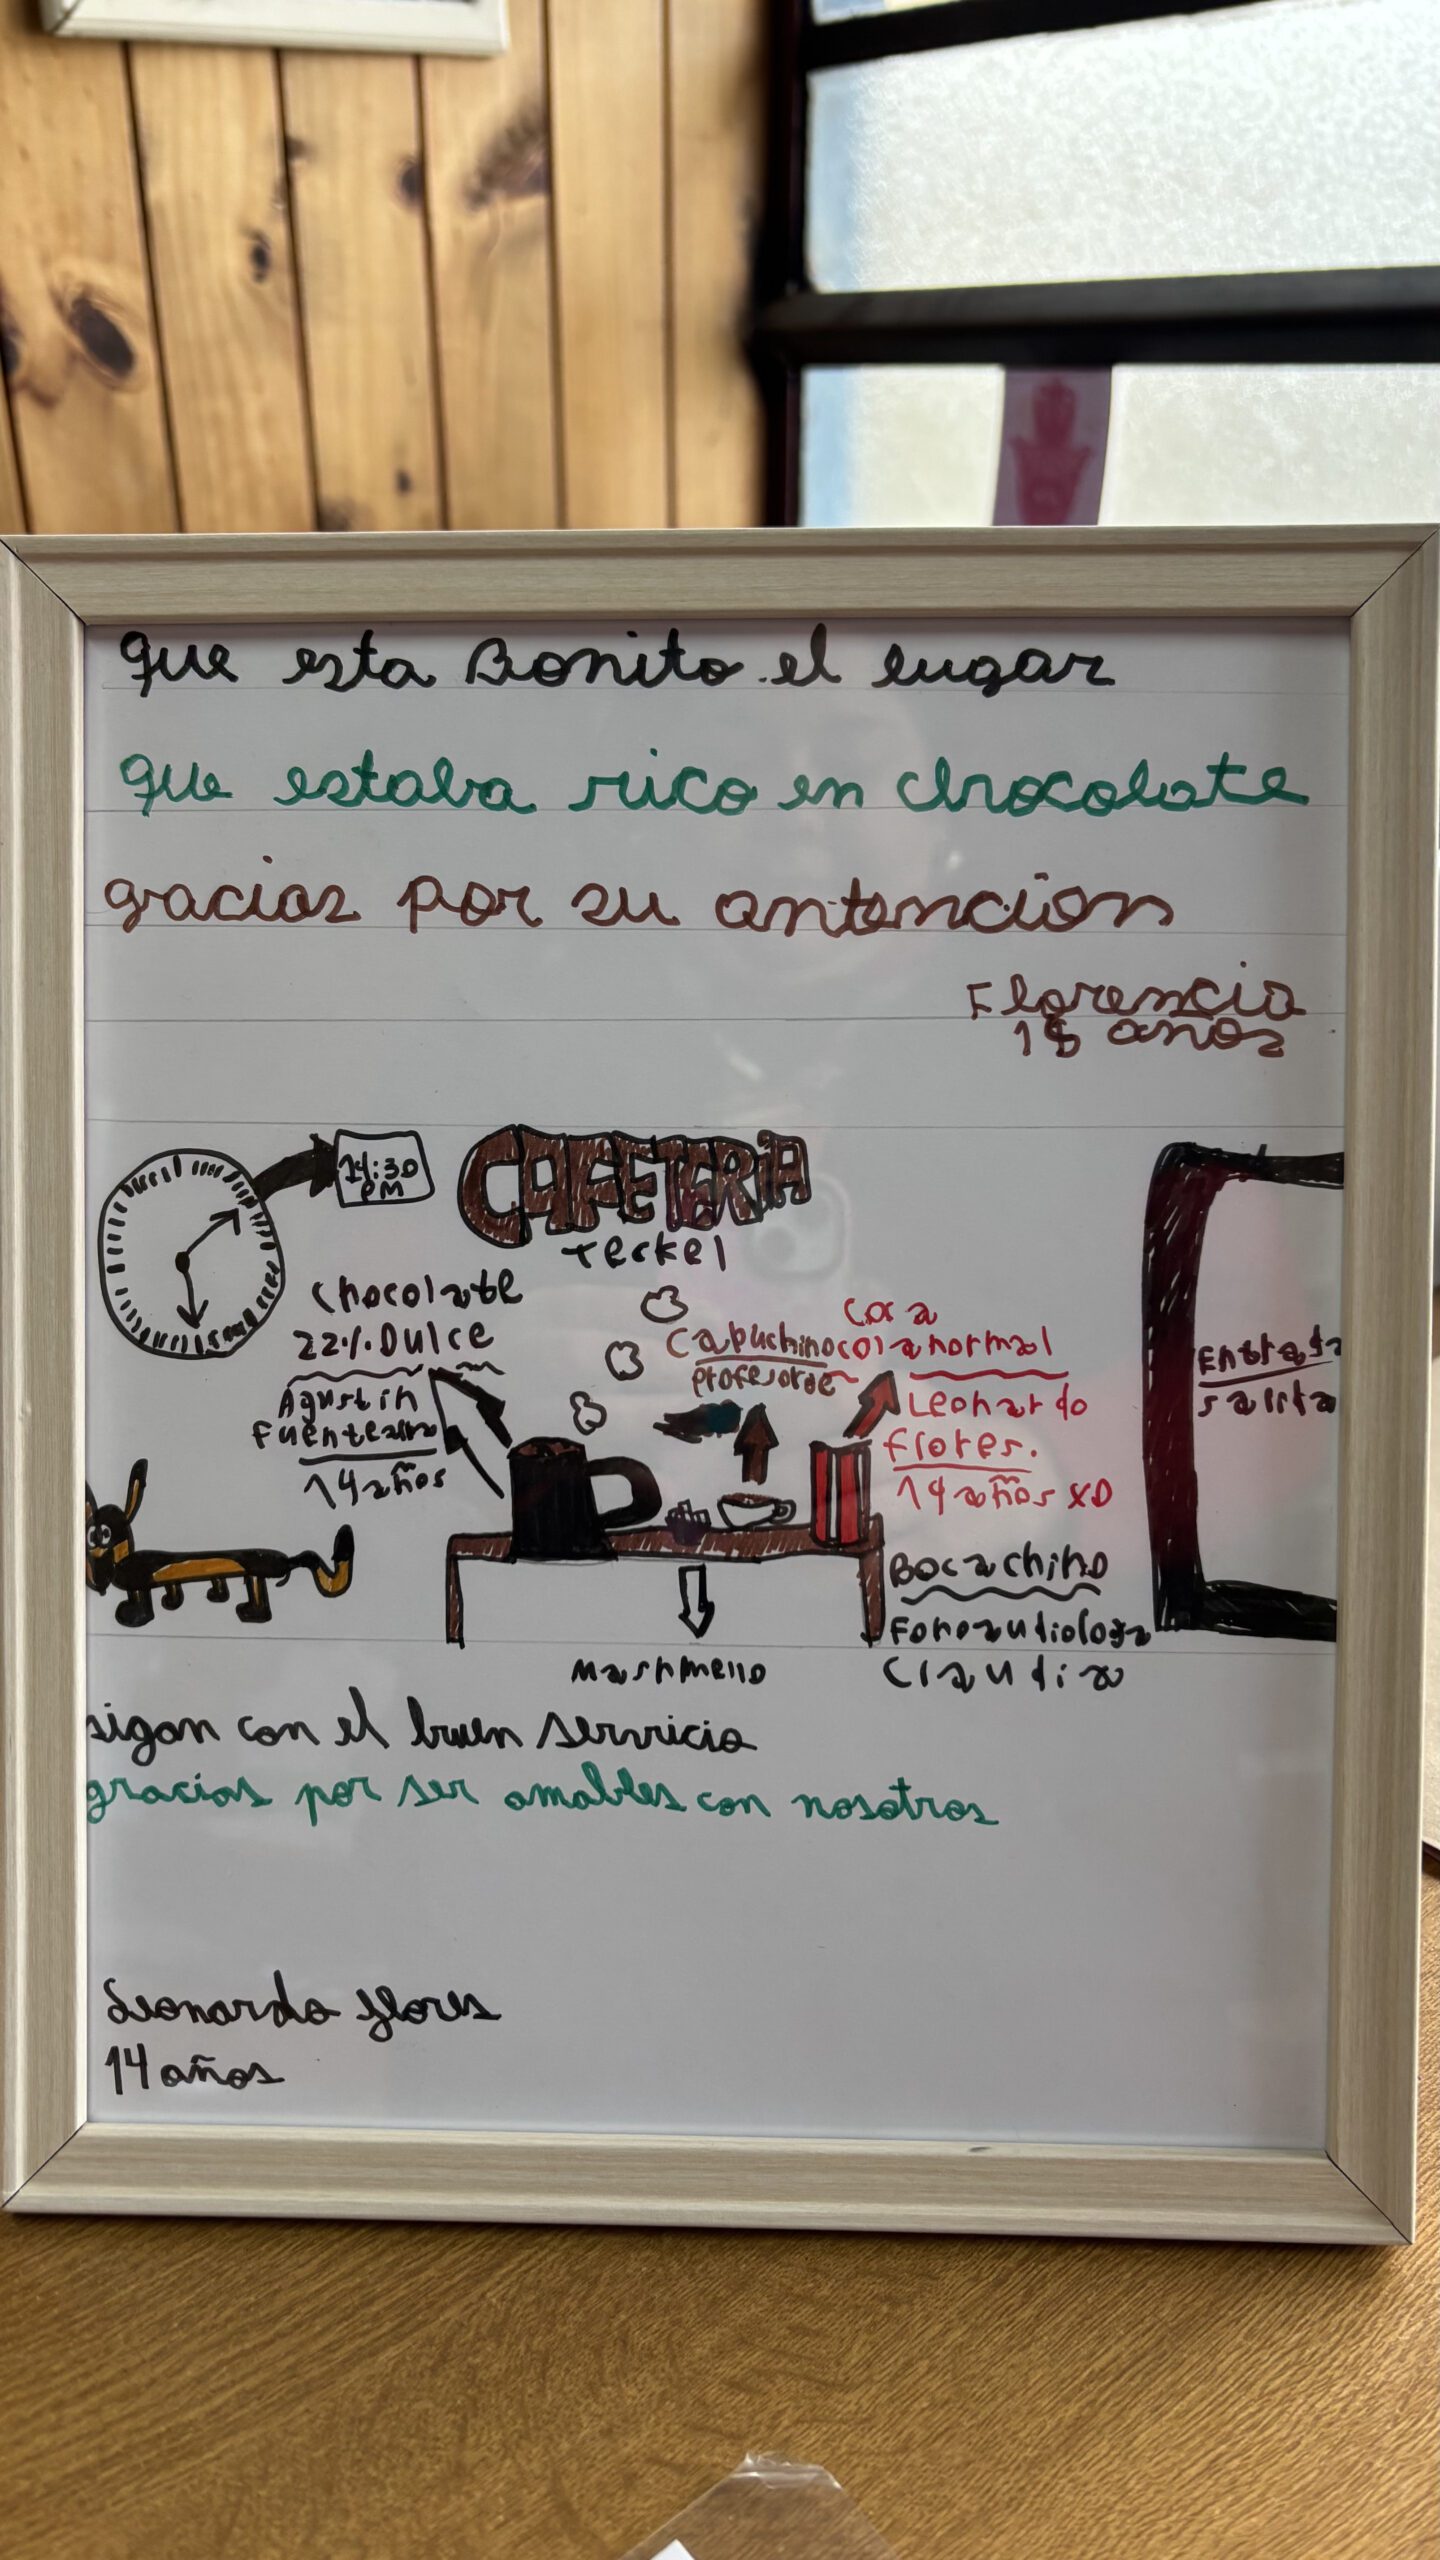 que esta Bonito el lugar
que estaba rico en chocolate
gracias por su antencion
Florencia
años
14:30
PM
CAFETERIA
Teckel
Chocolate
22% Dulce
Agustin
14 años
Capuchino
Profesor de
Coca
cola normal
Leonardo
Flores.
14 años XD
Entrada
salida
Bocachino
Fonoaudiologa
Claudia
Mashmello
sigan con el buen servicio
gracias por ser amables con nosotros
Leonardo flores
14 años